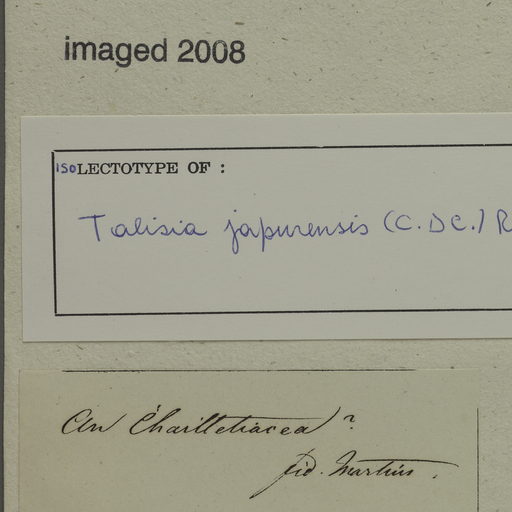 imaged 2008
ISOLECTOTYPE OF :
Talisia japurensis (C. DC.) R
An Chailletiacea?
fid. Martius.